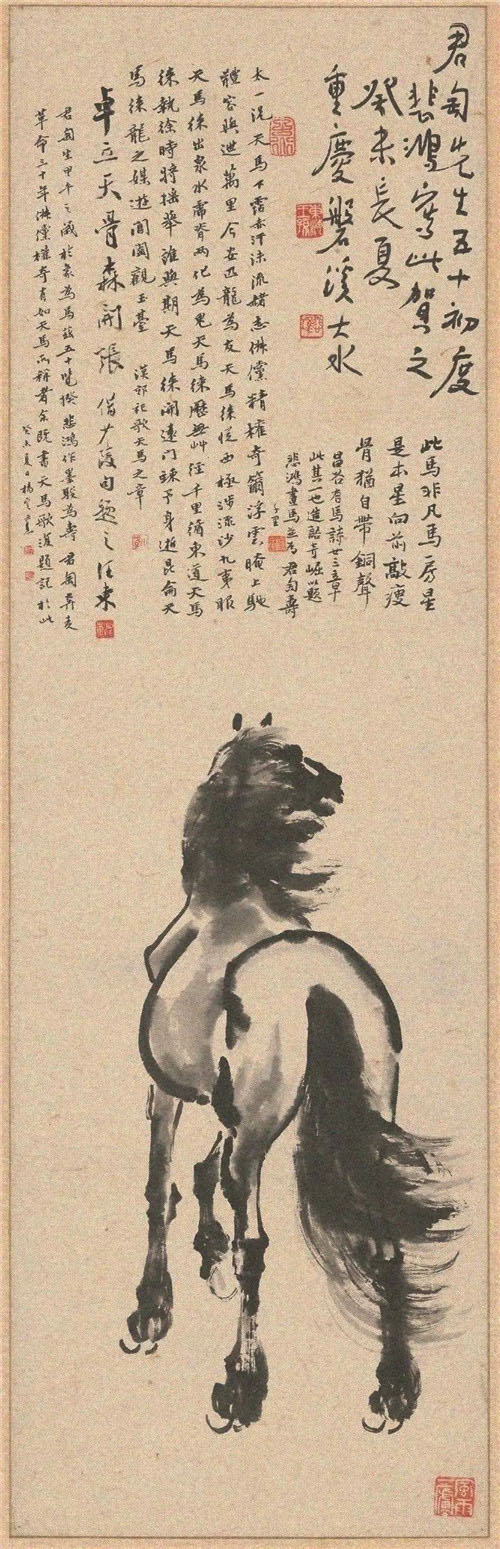 君匋先生五十初度
悲鴻寫此賀之
癸未長夏
重慶磐溪大水
此馬非凡馬房星
是本星向前敲瘦
骨猶自帶銅聲
昌谷有馬詩廿三章
此其一也造語奇崛以題
悲鴻畫馬並為君匋壽
太一況天馬下霑赤汗沫流赭志俶儻精權奇籋浮雲晻上馳
體容與迣萬里今安匹龍為友天馬徠從西極涉流沙九夷服
天馬徠出泉水虎脊兩化為鬼天馬徠歷無艸徑千里循東道天馬
徠執徐時將搖舉誰與期天馬徠開遠門竦予身逝昆侖天
馬徠龍之媒遊閶闔觀玉臺 漢郊祀歌天馬之章
卓立天骨森開張 借少陵句題之汪東
君匋生甲午之歲於象為馬茲五十覽揆悲鴻作墨駿為壽君匋奔走
革命三十年俶儻權奇有如天馬所稱者余既書天馬歌復題記於此
癸未夏日楊
風雨